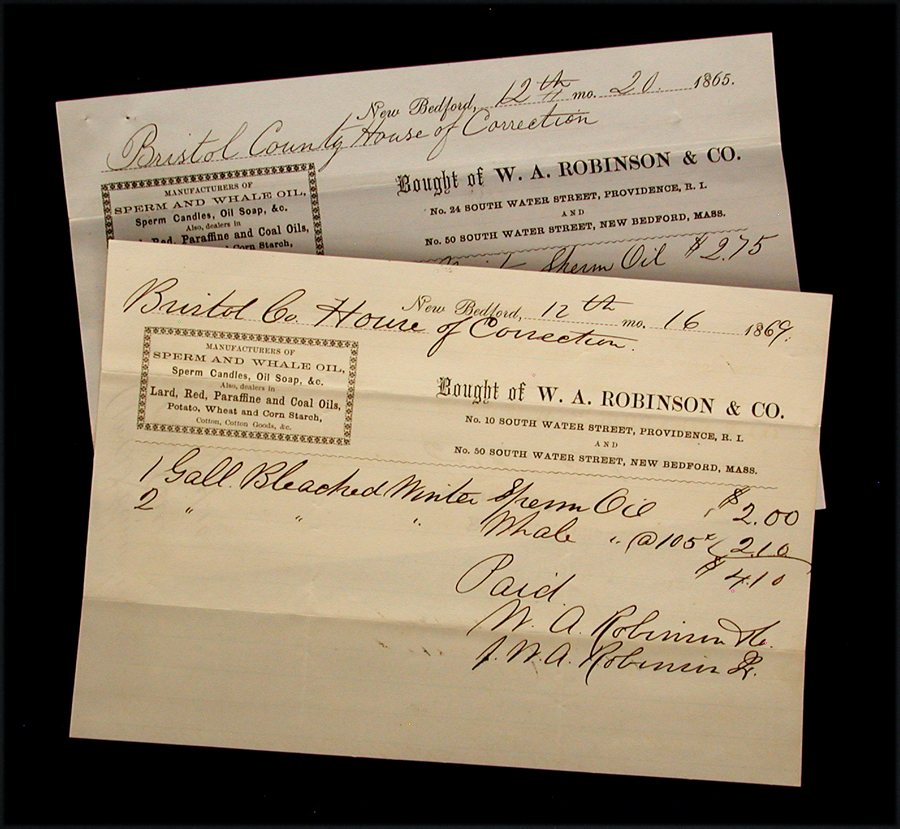 New Bedford, 12th mo. 20 1865.
Bristol County House of Correction
MANUFACTURERS OF
SPERM AND WHALE OIL,
Sperm Candles, Oil Soap, &c.
Also, dealers in
Red, Paraffine and Coal Oils,
Corn Starch,
Bought of W. A. ROBINSON & CO.
No. 24 SOUTH WATER STREET, PROVIDENCE, R. I.
AND
No. 50 SOUTH WATER STREET, NEW BEDFORD, MASS.
Sperm Oil $2.75
New Bedford, 12th mo. 16 1869.
Bristol Co. House of Correction.
MANUFACTURERS OF
SPERM AND WHALE OIL,
Sperm Candles, Oil Soap, &c.
Also, dealers in
Lard, Red, Paraffine and Coal Oils,
Potato, Wheat and Corn Starch,
Cotton, Cotton Goods, &c.
Bought of W. A. ROBINSON & CO.
No. 10 SOUTH WATER STREET, PROVIDENCE, R. I.
AND
No. 50 SOUTH WATER STREET, NEW BEDFORD, MASS.
1 Gall. Bleached Winter Sperm Oil $2.00
2 " " " Whale " @105c 2.10
$4.10
Paid
W. A. Robinson & Co.
W. A. Robinson Jr.